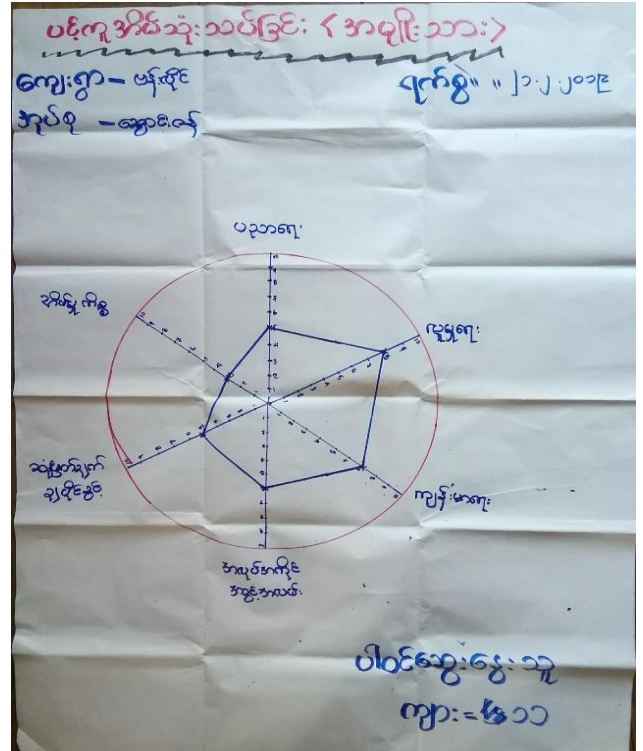 ပင့်ကူအိမ်သုံးသပ်ခြင်း <အမျိုးသား>
ကျေးရွာ - ဗန်းထိုင်
ရက်စွဲ။ ။ ၂၁.၂.၂၀၁၉
အုပ်စု -
ပညာရေး
လူမှုရေး
ကျန်းမာရေး
အလုပ်အကိုင်
အခွင့်အလမ်း
ဆုံးဖြတ်ချက်
ချပိုင်ခွင့်
အိမ်မှုကိစ္စ
ပါဝင်ဆွေးနွေးသူ
ကျား = ၁၁